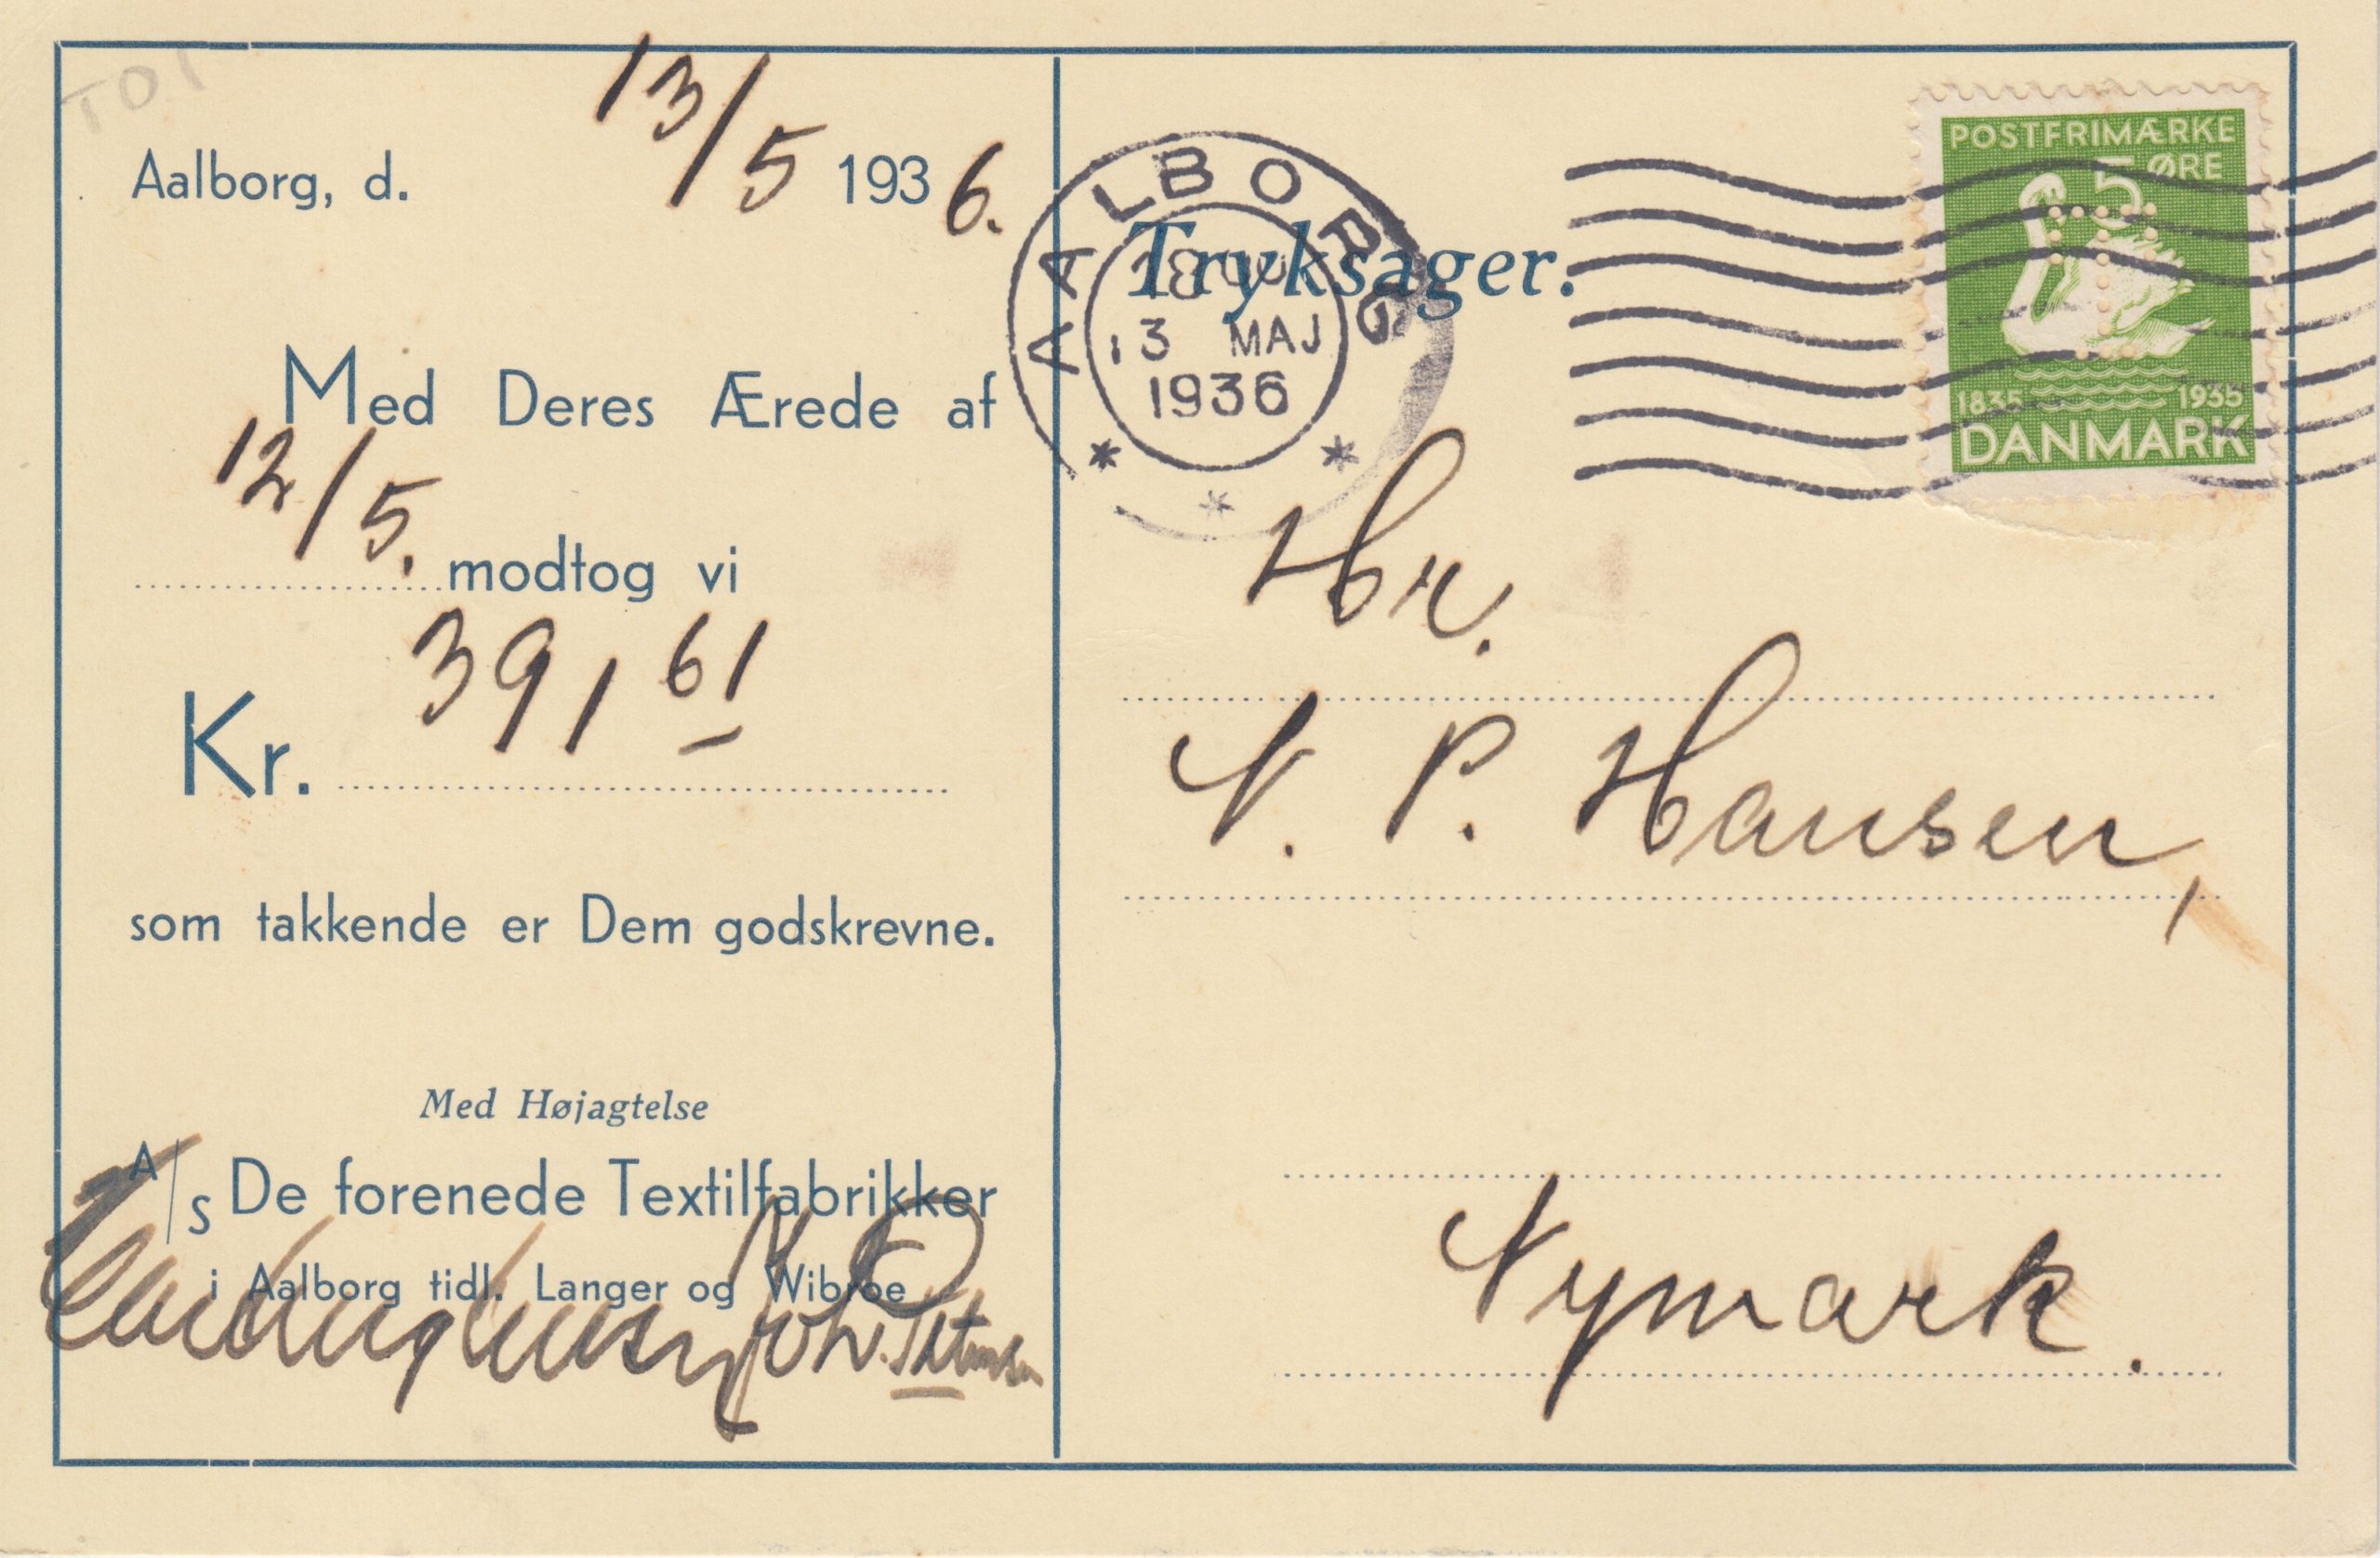 TOT
Aalborg, d. 13/5 1936.
Med Deres Ærede af
12/5. modtog vi
Kr. 391 61
som takkende er Dem godskrevne.
Med Højagtelse
A/S De forenede Textilfabrikker
i Aalborg tidl. Langer og Wibroe
AALBORG
13 MAJ
1936
Tryksager.
POSTFRIMÆRKE
5 ØRE
1835 1935
DANMARK
Hr.
N. P. Hansen,
Nymark.